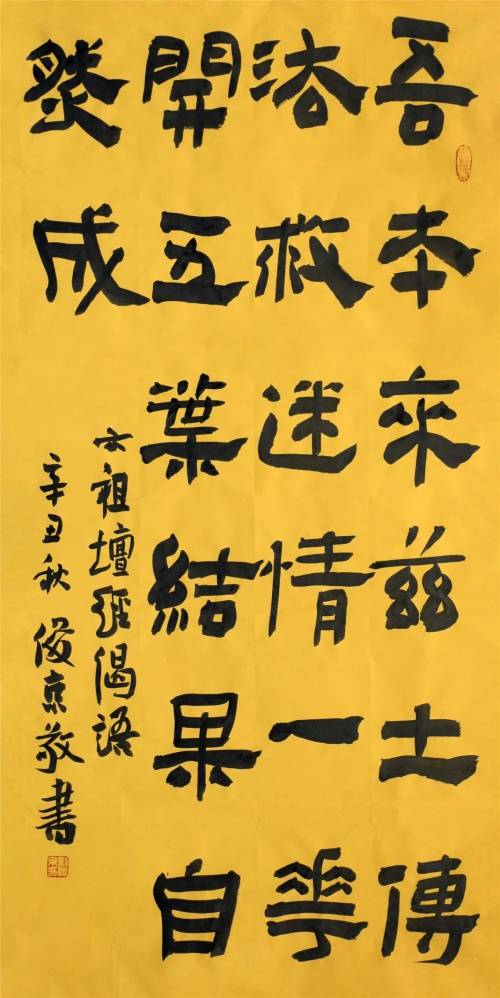 吾本來茲土傳
法救迷情一華
開五葉結果自
然成
六祖壇經偈語
辛丑秋 俊京敬書